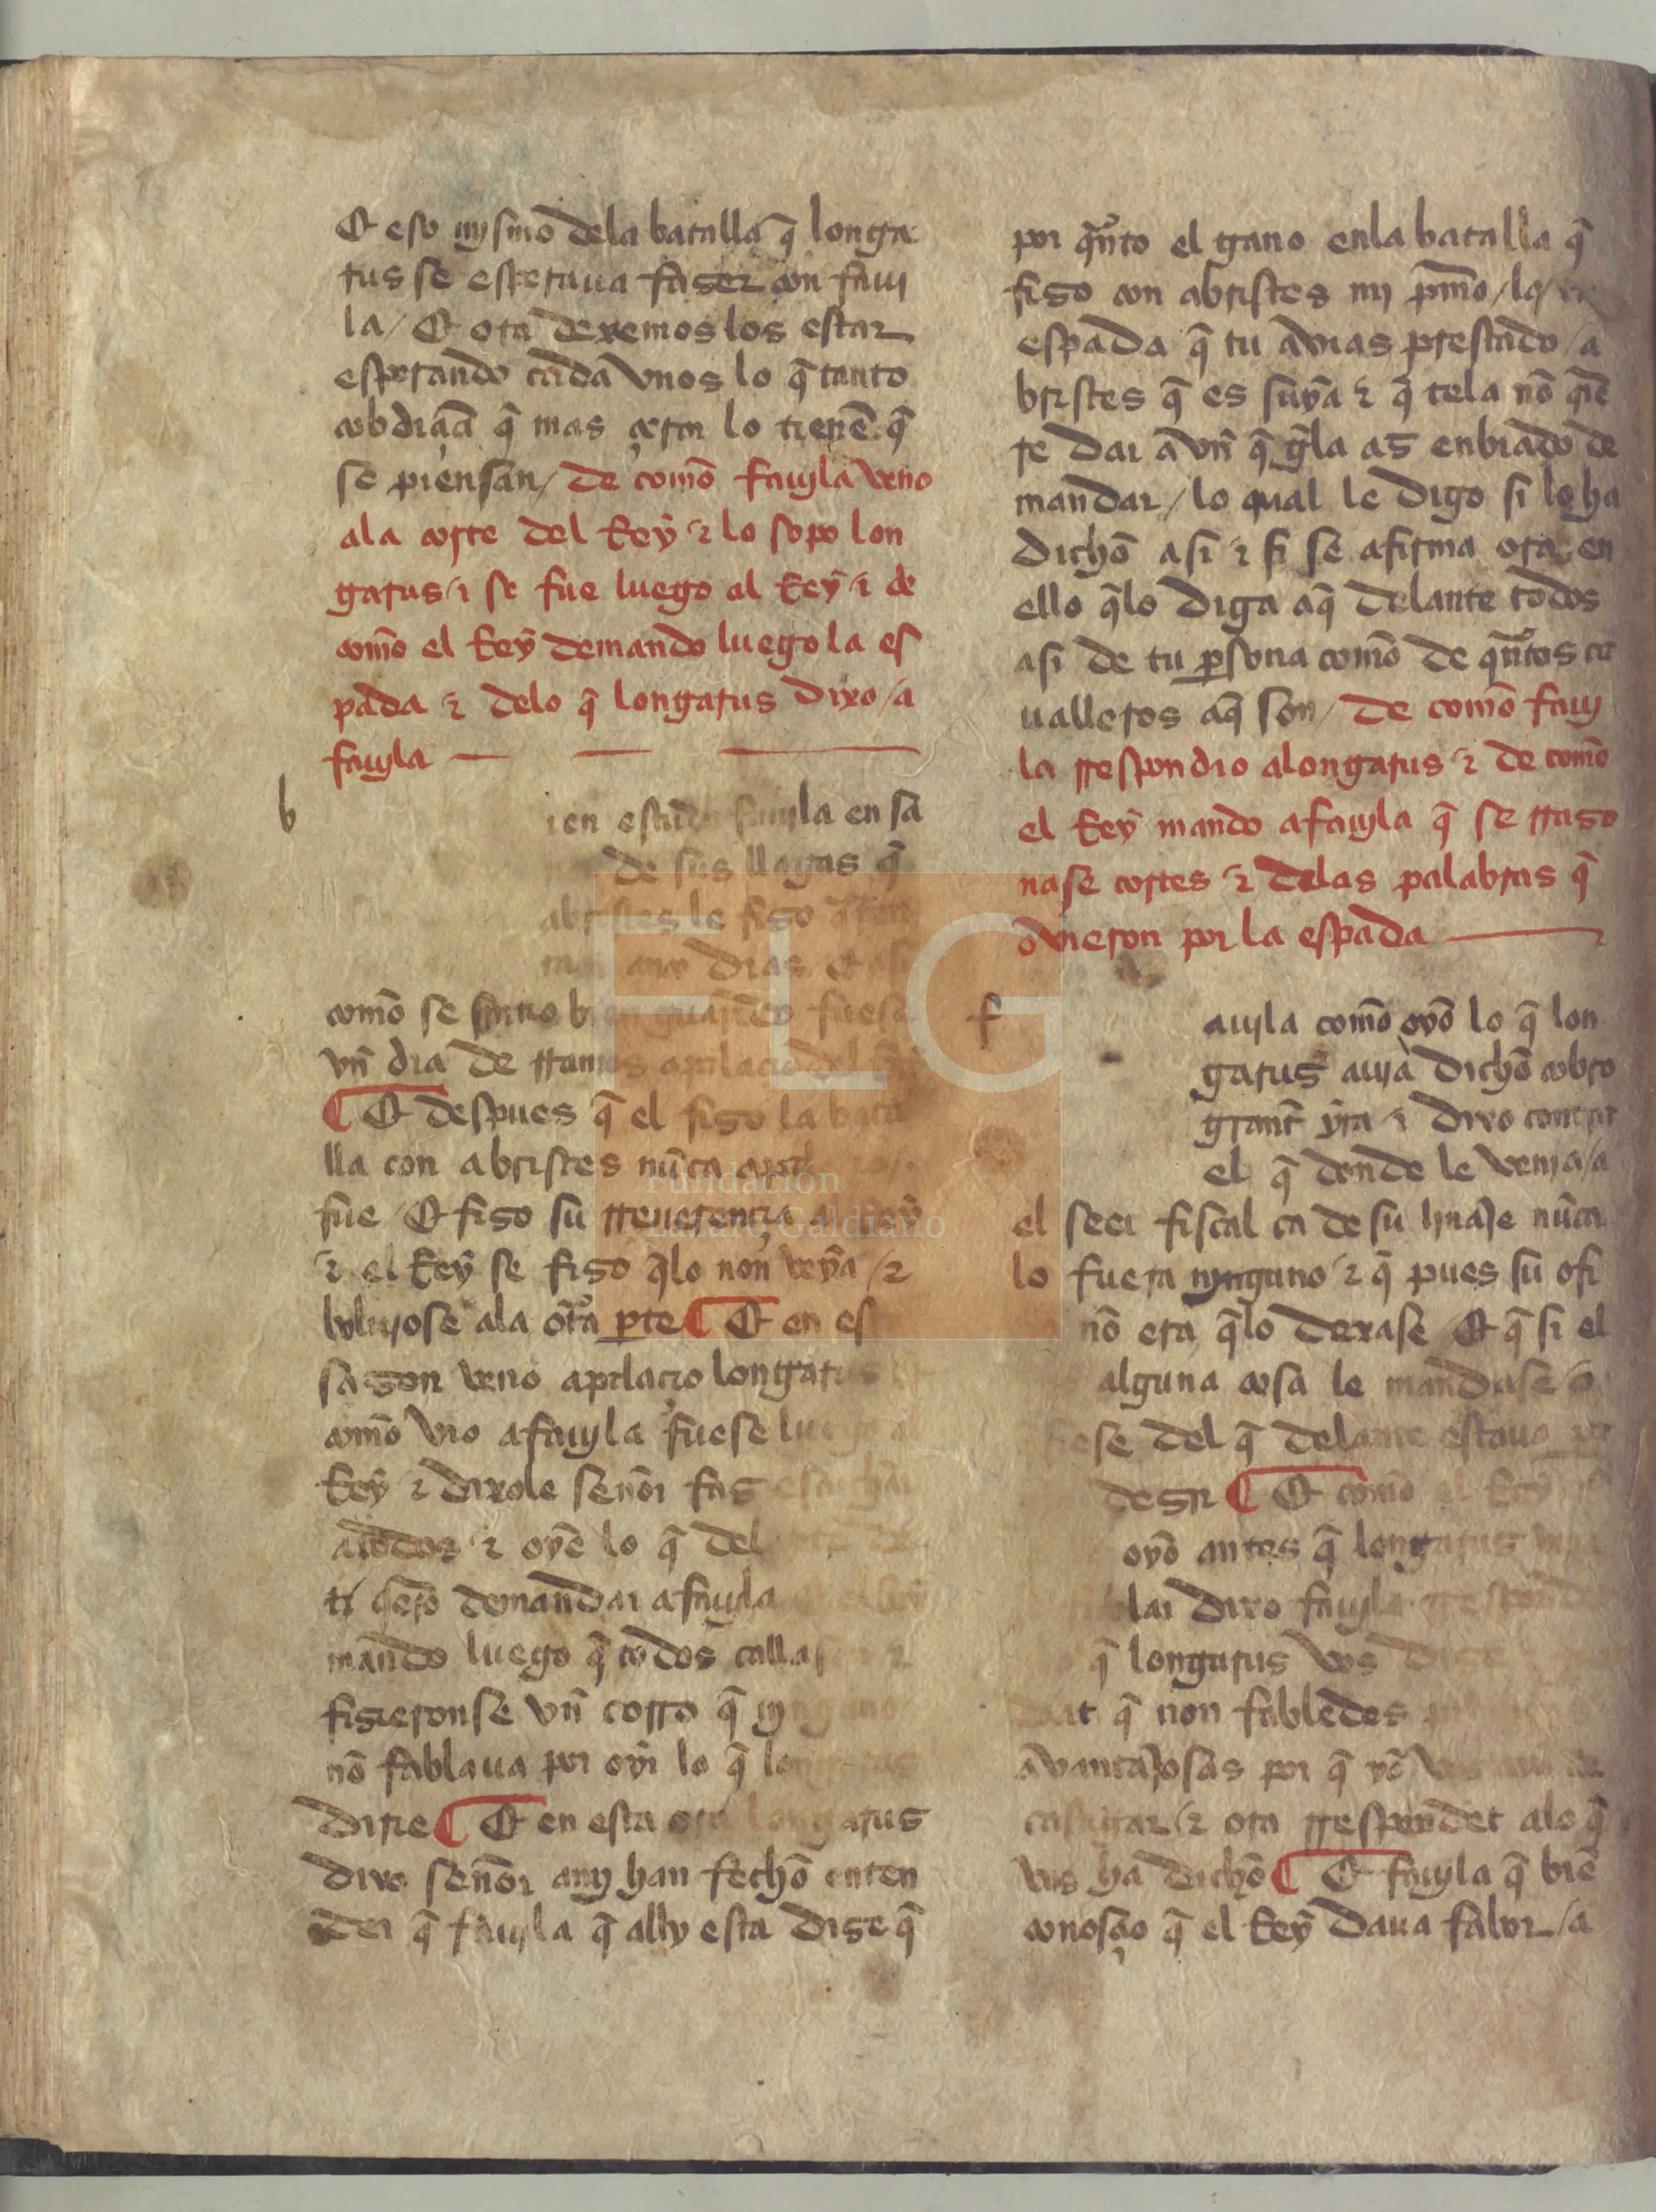 Et eso mysmo dela batalla q̃ longa
tus se esperaua faser con faui
la / Et ora dexemos los estar
esperando cada vnos lo q̃ tanto
cobdiçiã q̃ mas çerca lo tienẽ q̃
se piensan / de como fauyla veno
ala corte del Rey τ lo sopo lon
garus / τ se fue luego al Rey / τ de
como el Rey demando luego la es
pada τ delo q̃ longarus dixo / a
fauyla
b
ien estado fauyla en sa
de sus llagas q̃
abristes le fiso
dias Et
como se sintio bien guarido fuese
vñ dia de rramos a palacio del
Et despues q̃ el fiso la bata
lla con abristes nũca
fue / Et fiso su rreuerençia al Rey
τ el Rey se fiso q̃lo non veya / τ
boluyose ala otra parte Et en es
sason veno a palaçio longarus
como vio a fauyla fuese luego al
Rey τ dixole señor fas escuchar
a todos τ oyẽ lo q̃ del
ti q̃ero demandar a fauyla el Rey
mando luego q̃ todos calla
fisieronse vñ corro q̃ nynguno
nõ fablaua por oyr lo q̃ longarus
dirie Et en esta ora longarus
dixo señor a my han fecho enten
der q̃ fauyla q̃ ally esta dise q̃
por q̃nto el gano enla batalla q̃
fiso con abristes my p̃mo / la
espada q̃ tu avias prestado / a
bristes q̃ es suya τ q̃ tela nõ q̃ie
re dar avñ q̃ gela as enbiado de
mandar / lo qual le digo si lo ha
dicho asi τ si se afirma ora en
ello q̃lo diga aq̃ delante todos
asi de tu persona como de q̃ntos ca
ualleros aq̃ son / de como faui
la rrespondio alongarus τ de como
el Rey mando a fauyla q̃ se rraso
nase cortes τ delas palabras q̃
ovieron por la espada
f
auyla como oyo lo q̃ lon
garus auia dicho cobro
grant yra τ dixo contra
el q̃ donde le venia / a
el seer fiscal ca de su linaje nũca
lo fuera nynguno τ q̃ pues su ofi
nõ era q̃lo dexase Et q̃ si el
alguna cosa le mandase / o
se del q̃ delante estaua
desir Et como el Rey
oyo antes q̃ longarus
blar dixo fauyla rresponde
q̃ longarus vos
dat q̃ non fabledes
avantajosas por q̃ yo vos
castigar / τ ora rrespondet alo q̃
vos ha dicho Et fauyla q̃ biẽ
conosçio q̃ el Rey daua fauor / a